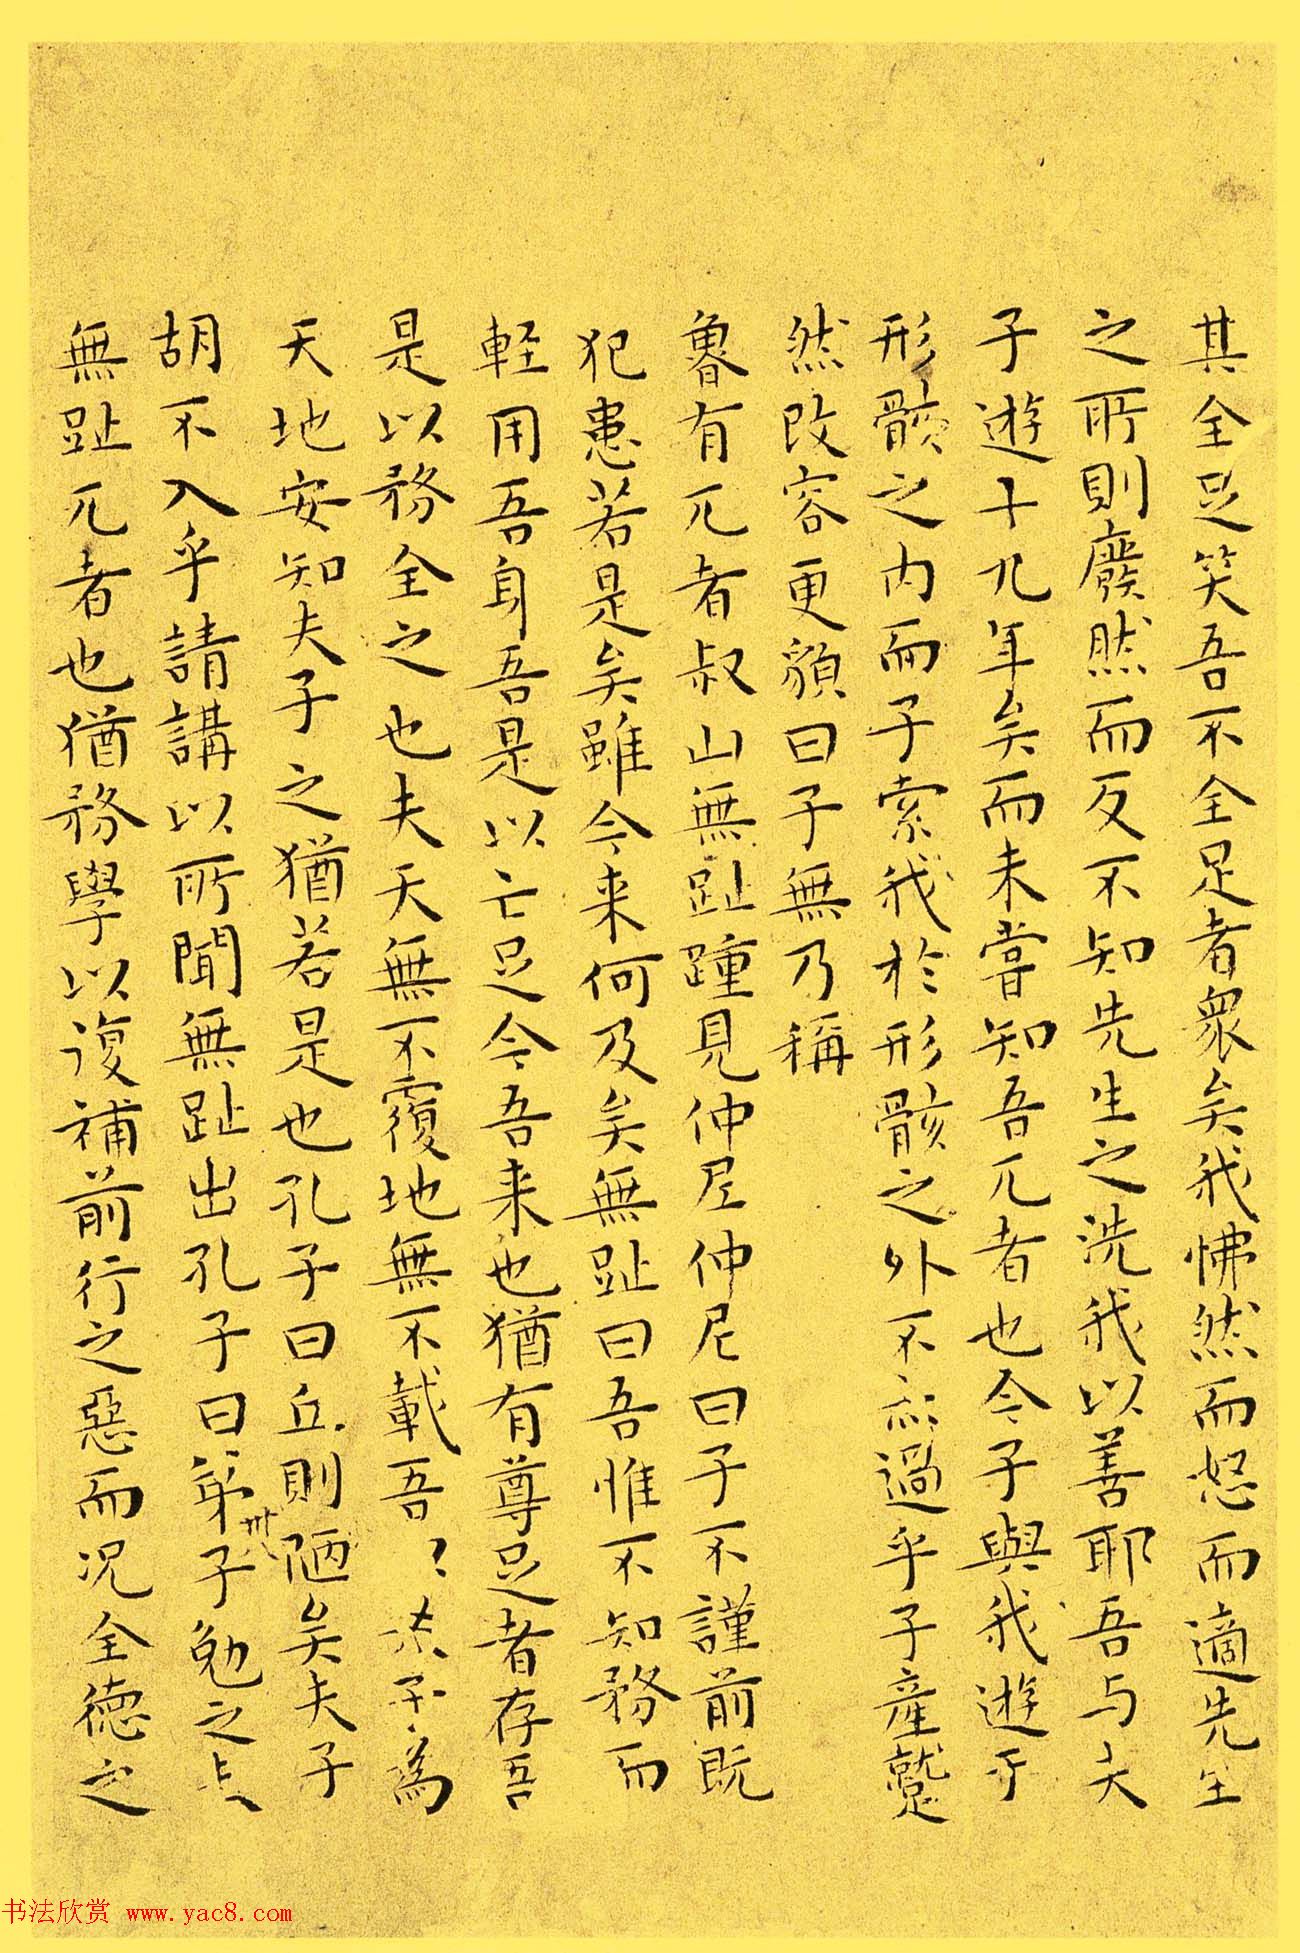 其全足笑吾不全足者衆矣我怫然而怒而適先生
之所則廢然而反不知先生之洗我以善耶吾与夫
子遊十九年矣而未嘗知吾兀者也今子與我遊于
形骸之内而子索我於形骸之外不亦過乎子產蹵
然改容更貌曰子無乃稱
魯有兀者叔山無趾踵見仲尼仲尼曰子不謹前既
犯患若是矣雖今来何及矣無趾曰吾惟不知務而
軽用吾身吾是以亡足今吾来也猶有尊足者存吾
是以務全之也夫天無不覆地無不載吾以夫子為
天地安知夫子之猶若是也孔子曰丘則陋矣夫子
胡不入乎請講以所聞無趾出孔子曰弟子勉之
無趾兀者也猶務學以復補前行之惡而况全德之
书法欣赏 www.yac8.com